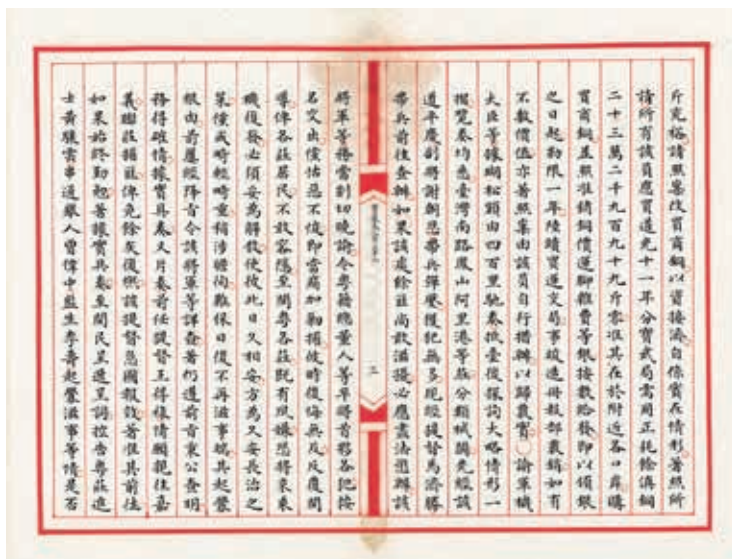 斤克裕請照案改買商銅以資接濟自係實在情形著照所
請所有該員應買道光十一年分寶武局需用正耗餘滇銅
二十三萬二千九百九十九斤零准其在於附近各口岸購
買商銅並照准銷銅價運腳雜費等銀按數給發即以領銀
之日起勒限一年陸續買運交局事竣造冊報部覈銷如有
不敷價值亦著照案由該員自行措辦以歸覈實○諭軍機
大臣等據瑚松額由四百里馳奏抵臺後探詢大略情形一
摺覽奏均悉臺灣南路鳳山阿里港等莊分類械鬪先經該
道平慶副將謝朝恩帶兵彈壓獲犯無多現經提督馬濟勝
帶兵前往查辦如果該處餘莊尚敢滋擾必應盡法懲辦該
將軍等務當剴切曉諭令粵籍總董人等早將首夥各犯按
名交出儻怙惡不悛即當厲加勦捕俟時後悔無及反覆開
導俾各莊居民不敢容隱至閩粵各莊既有夙嫌恐將來乘
機復發必須妥為解散使彼此日久相安方為久安長治之
策儻或時輕時重稍涉瞻徇難保日後不再滋事端其起釁
根由前屢經降旨令該將軍等詳查著仍遵前旨秉公查明
務得確情據實具奏又片奏前任提督王得祿情願親往嘉
義聯莊捕匪俾免餘灰復燃該提督急圖報效著准其前往
如果始終勤勉著據實具奏至閩民呈遞呈詞控告粵莊進
士黃驤雲串通職人曾偉中監生李壽起釁滋事等情是否
三